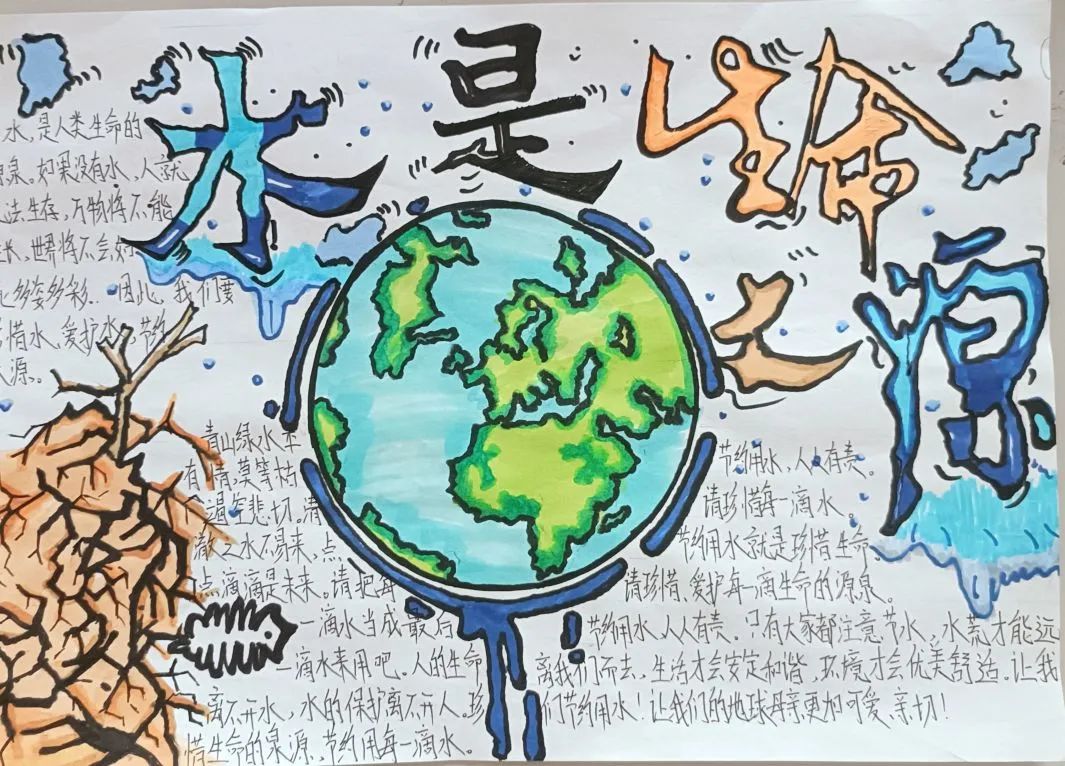 水是生命之源
水，是人类生命的
源泉。如果没有水，人就
法生存，万物将不能
生长，世界将不会如
此多姿多彩..因此，我们要
惜水、爱护水、节约
水源。
青山绿水本
有情，草等枯
渴至悲切。清
澈之水不易来，点
点滴滴是未来。请把每
一滴水当成最后
一滴水来用吧。人的生命
离不开水，水的保护离不开人。珍
惜生命的泉源，节约用每一滴水。
节约用水，人人有责。
请珍惜每一滴水。
节约用水就是珍惜生命。
请珍惜、爱护每一滴生命的源泉。
节约用水、人人有责。只有大家都注意节水，水荒才能远
离我们而去，生活才会安定和谐，环境才会优美舒适。让我
们节约用水！让我们的地球母亲更加可爱、亲切！